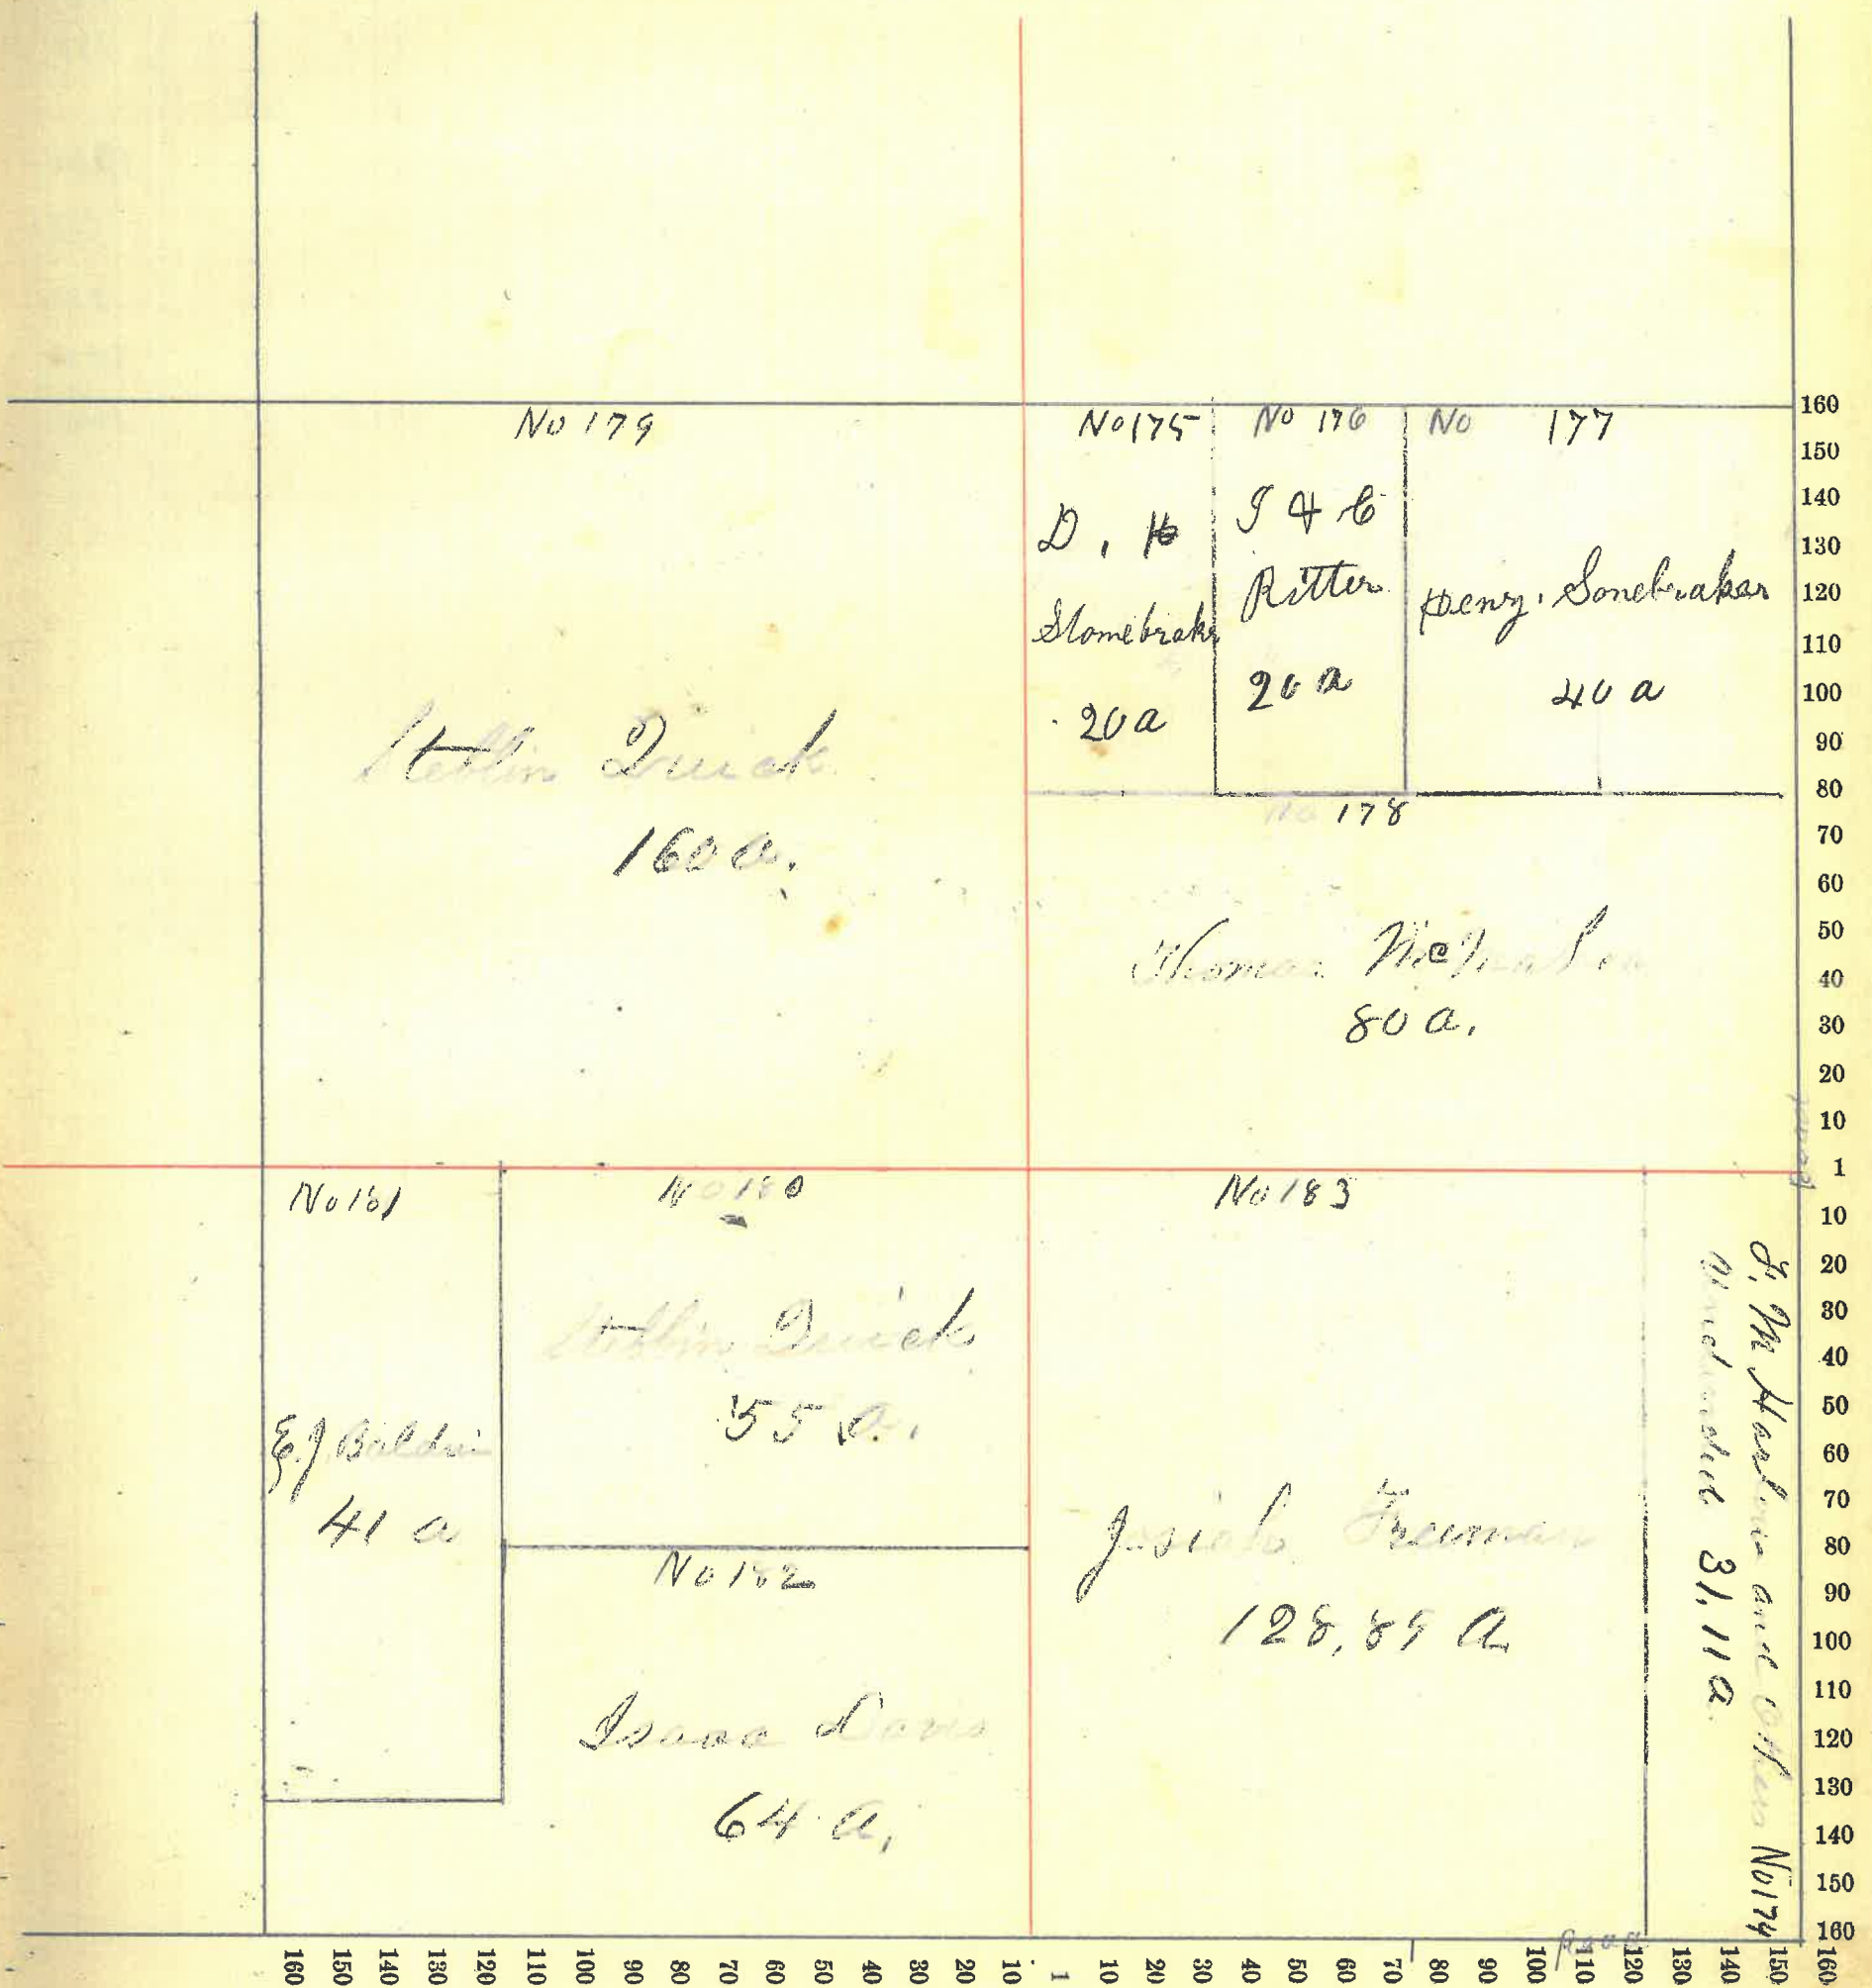 No 179
No 175
No 176
No 177
D. H
Stonebraker
20 a
I & C
Ritter
20 a
Henry. Sonebraker
40 a
Quick
160 a.
No 178
Thomas
80 a.
No 181
E. J Baldwin
41 a
No 180
Quick
55 a.
No 182
Isaac Davis
64 a.
No 183
Josiah Freeman
128,89 A
and Others No 174
31,11 a.
Road
160
150
140
130
120
110
100
90
80
70
60
50
40
30
20
10
1
10
20
30
40
50
60
70
80
90
100
110
120
130
140
150
160
160 150 140 130 120 110 100 90 80 70 60 50 40 30 20 10 1 10 20 30 40 50 60 70 80 90 100 110 120 130 140 150 160